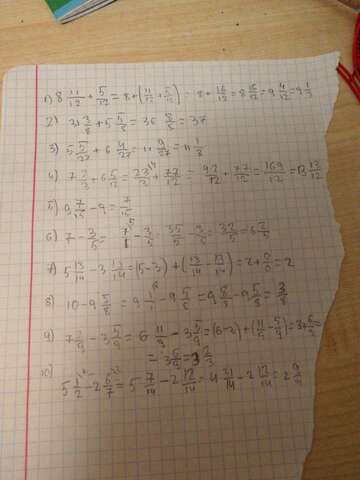 1) 8 11/12 + 5/12 = 8 + (11/12 + 5/12) = 8 + 16/12 = 8 16/12 = 9 4/12 = 9 1/3
2) 31 3/8 + 5 5/8 = 36 8/8 = 37
3) 5 5/27 + 6 4/27 = 11 9/27 = 11 1/3
4) 7 2/3 + 6 5/12 = 23/3 + 77/12 = 92/12 + 77/12 = 169/12 = 13 13/12
5) 9 7/15 - 9 = 7/15
6) 7 - 3/5 = 7/1 - 3/5 = 35/5 - 3/5 = 32/5 = 6 2/5
7) 5 13/14 - 3 13/14 = (5-3) + (13/14 - 13/14) = 2 + 0/0 = 2
8) 10 - 9 5/8 = 9 1/1 - 9 5/8 = 9 8/8 - 9 5/8 = 3/8
9) 7 2/9 - 3 5/9 = 6 11/9 - 3 5/9 = (6-2) + (11/9 - 5/9) = 3 + 6/9 =
= 3 6/9 = 3 2/3
10) 5 1/2 - 2 6/7 = 5 7/14 - 2 12/14 = 4 21/14 - 2 12/14 = 2 9/14